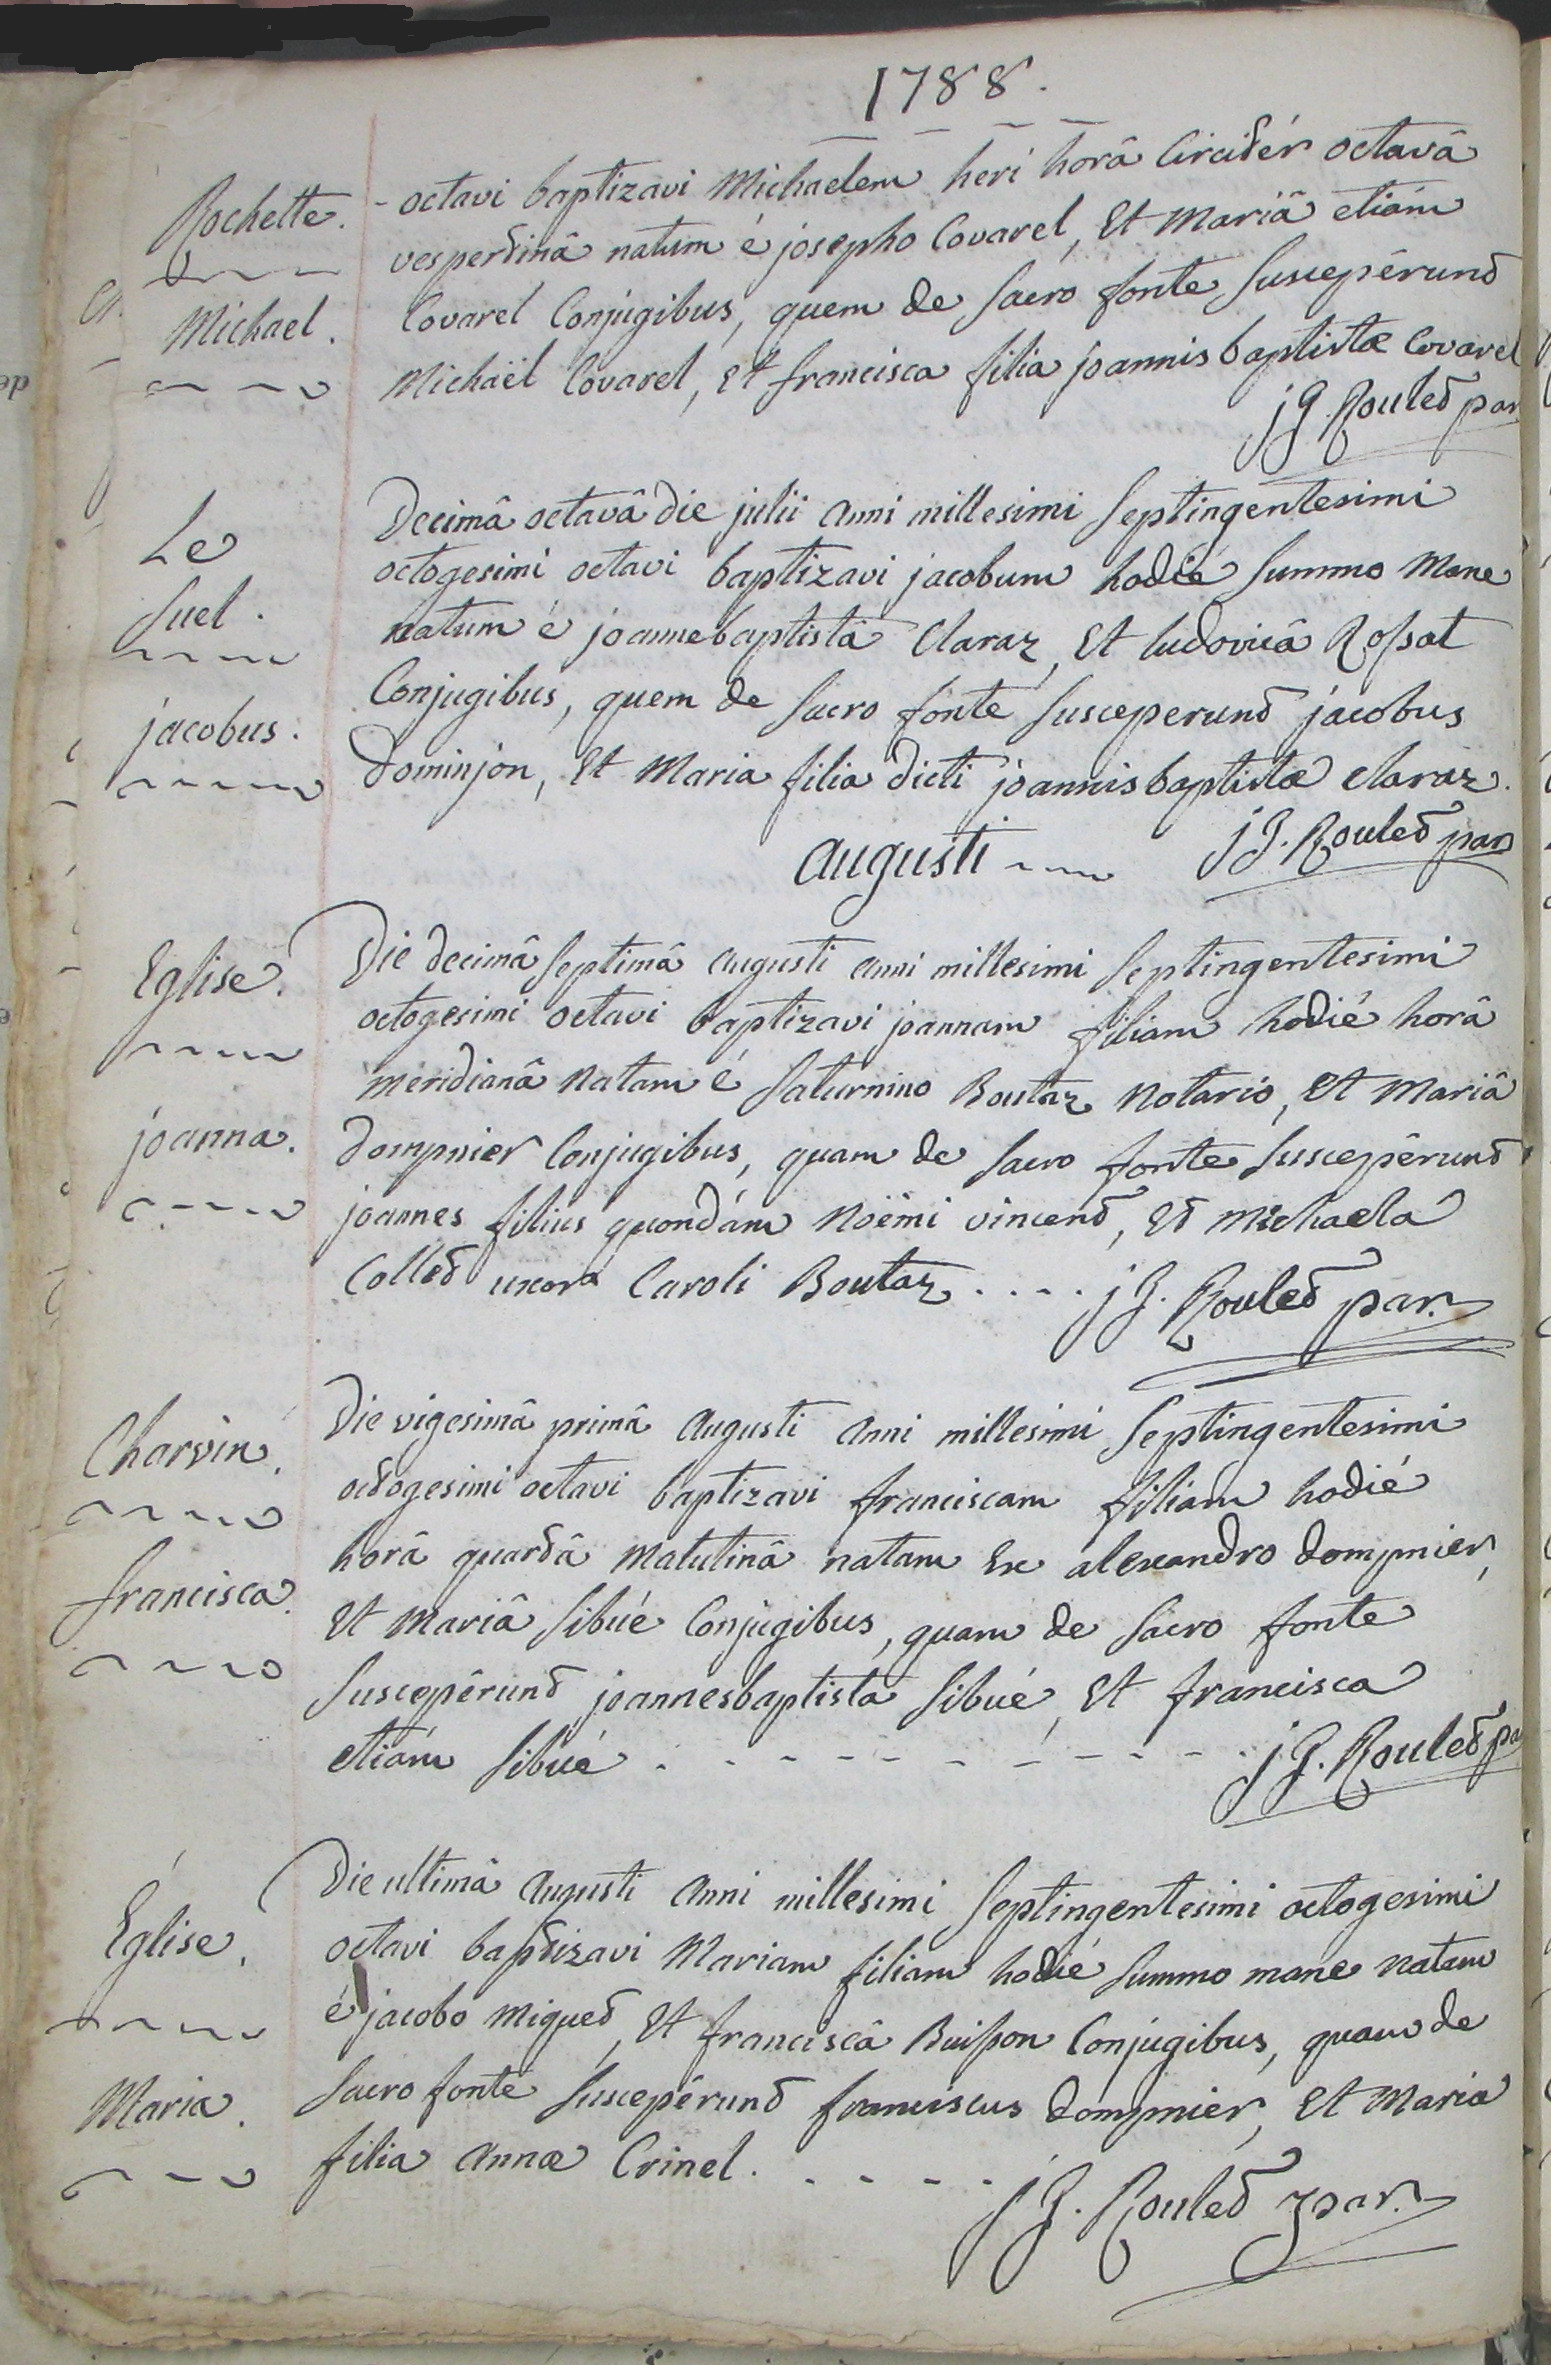 1788.
Rochette.
Michael.
- octavi baptizavi Michaelem heri horâ Circitér octavâ
vespertinâ natum é josepho Covarel, Et Mariâ etiám
Covarel Conjugibus, quem de Sacro fonte Suscepêrunt
Michaël Covarel, Et francisca filia joannisbaptistæ Covarel
jG. Roulet par
Le
Suel.
jacobus.
Decimâ octavâ die julii anni millesimi Septingentesimi
octogesimi octavi baptizavi jacobum hodié Summo Mane
natum é joannebaptistâ Claraz, Et ludovicâ Rossat
Conjugibus, quem de Sacro fonte Susceperunt jacobus
Dominjon, Et Maria filia dicti joannisbaptistæ Claraz.
jG. Roulet par
Augusti
Eglise.
joanna.
Die decimâ Septimâ augusti anni millesimi Septingentesimi
octogesimi octavi baptizavi joannam filiam hodié horâ
meridianâ natam é Saturnino Boutaz Notario, Et Mariâ
dompnier Conjugibus, quam de Sacro fonte Suscepêrunt
joannes filius quondám Noëmi vincent, Et Michaela
Collet uxor Caroli Boutaz . . . . jG. Roulet par.
Charvin.
francisca.
Die vigesimâ primâ Augusti anni millesimi Septingentesimi
octogesimi octavi baptizavi franciscam filiam hodié
horâ quartâ Matutinâ natam Ex alexandro dompnier,
Et Mariâ Sibué Conjugibus, quam de Sacro fonte
Suscepêrunt joannesbaptista Sibué, Et francisca
etiám Sibué . - - - - - - - - - jG. Roulet pa
Église.
Maria.
Die ultimâ Augusti anni millesimi Septingentesimi octogesimi
octavi baptizavi Mariam filiam hodié Summo mane natam
é jacobo Miquet, Et franciscâ Buisson Conjugibus, quam de
Sacro fonte Suscepérunt franciscus dompnier, Et Maria
filia annæ Crinel. - - - -
jG. Roulet par.